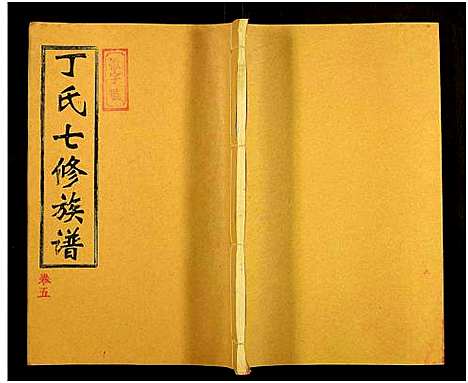 丁氏七修族谱
卷五